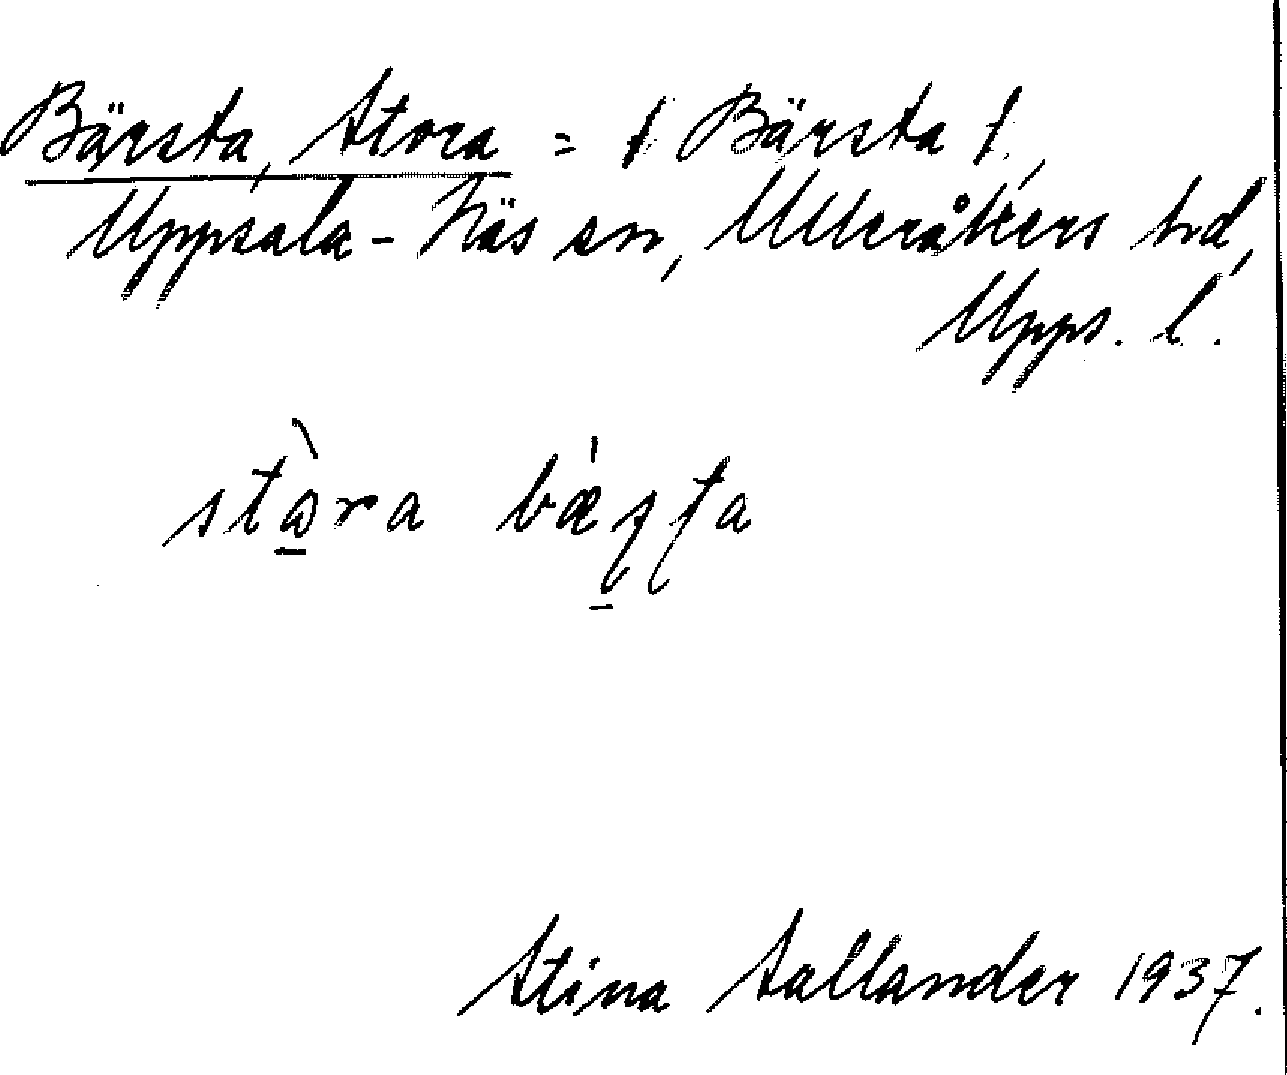 Bärsta, Stora = f Bärsta f.,
Uppsala-Näs sn, Ulleråkers hd,
Upps. l.
stɷ̀ra bǽʂʈa
Stina Sallander 1937.